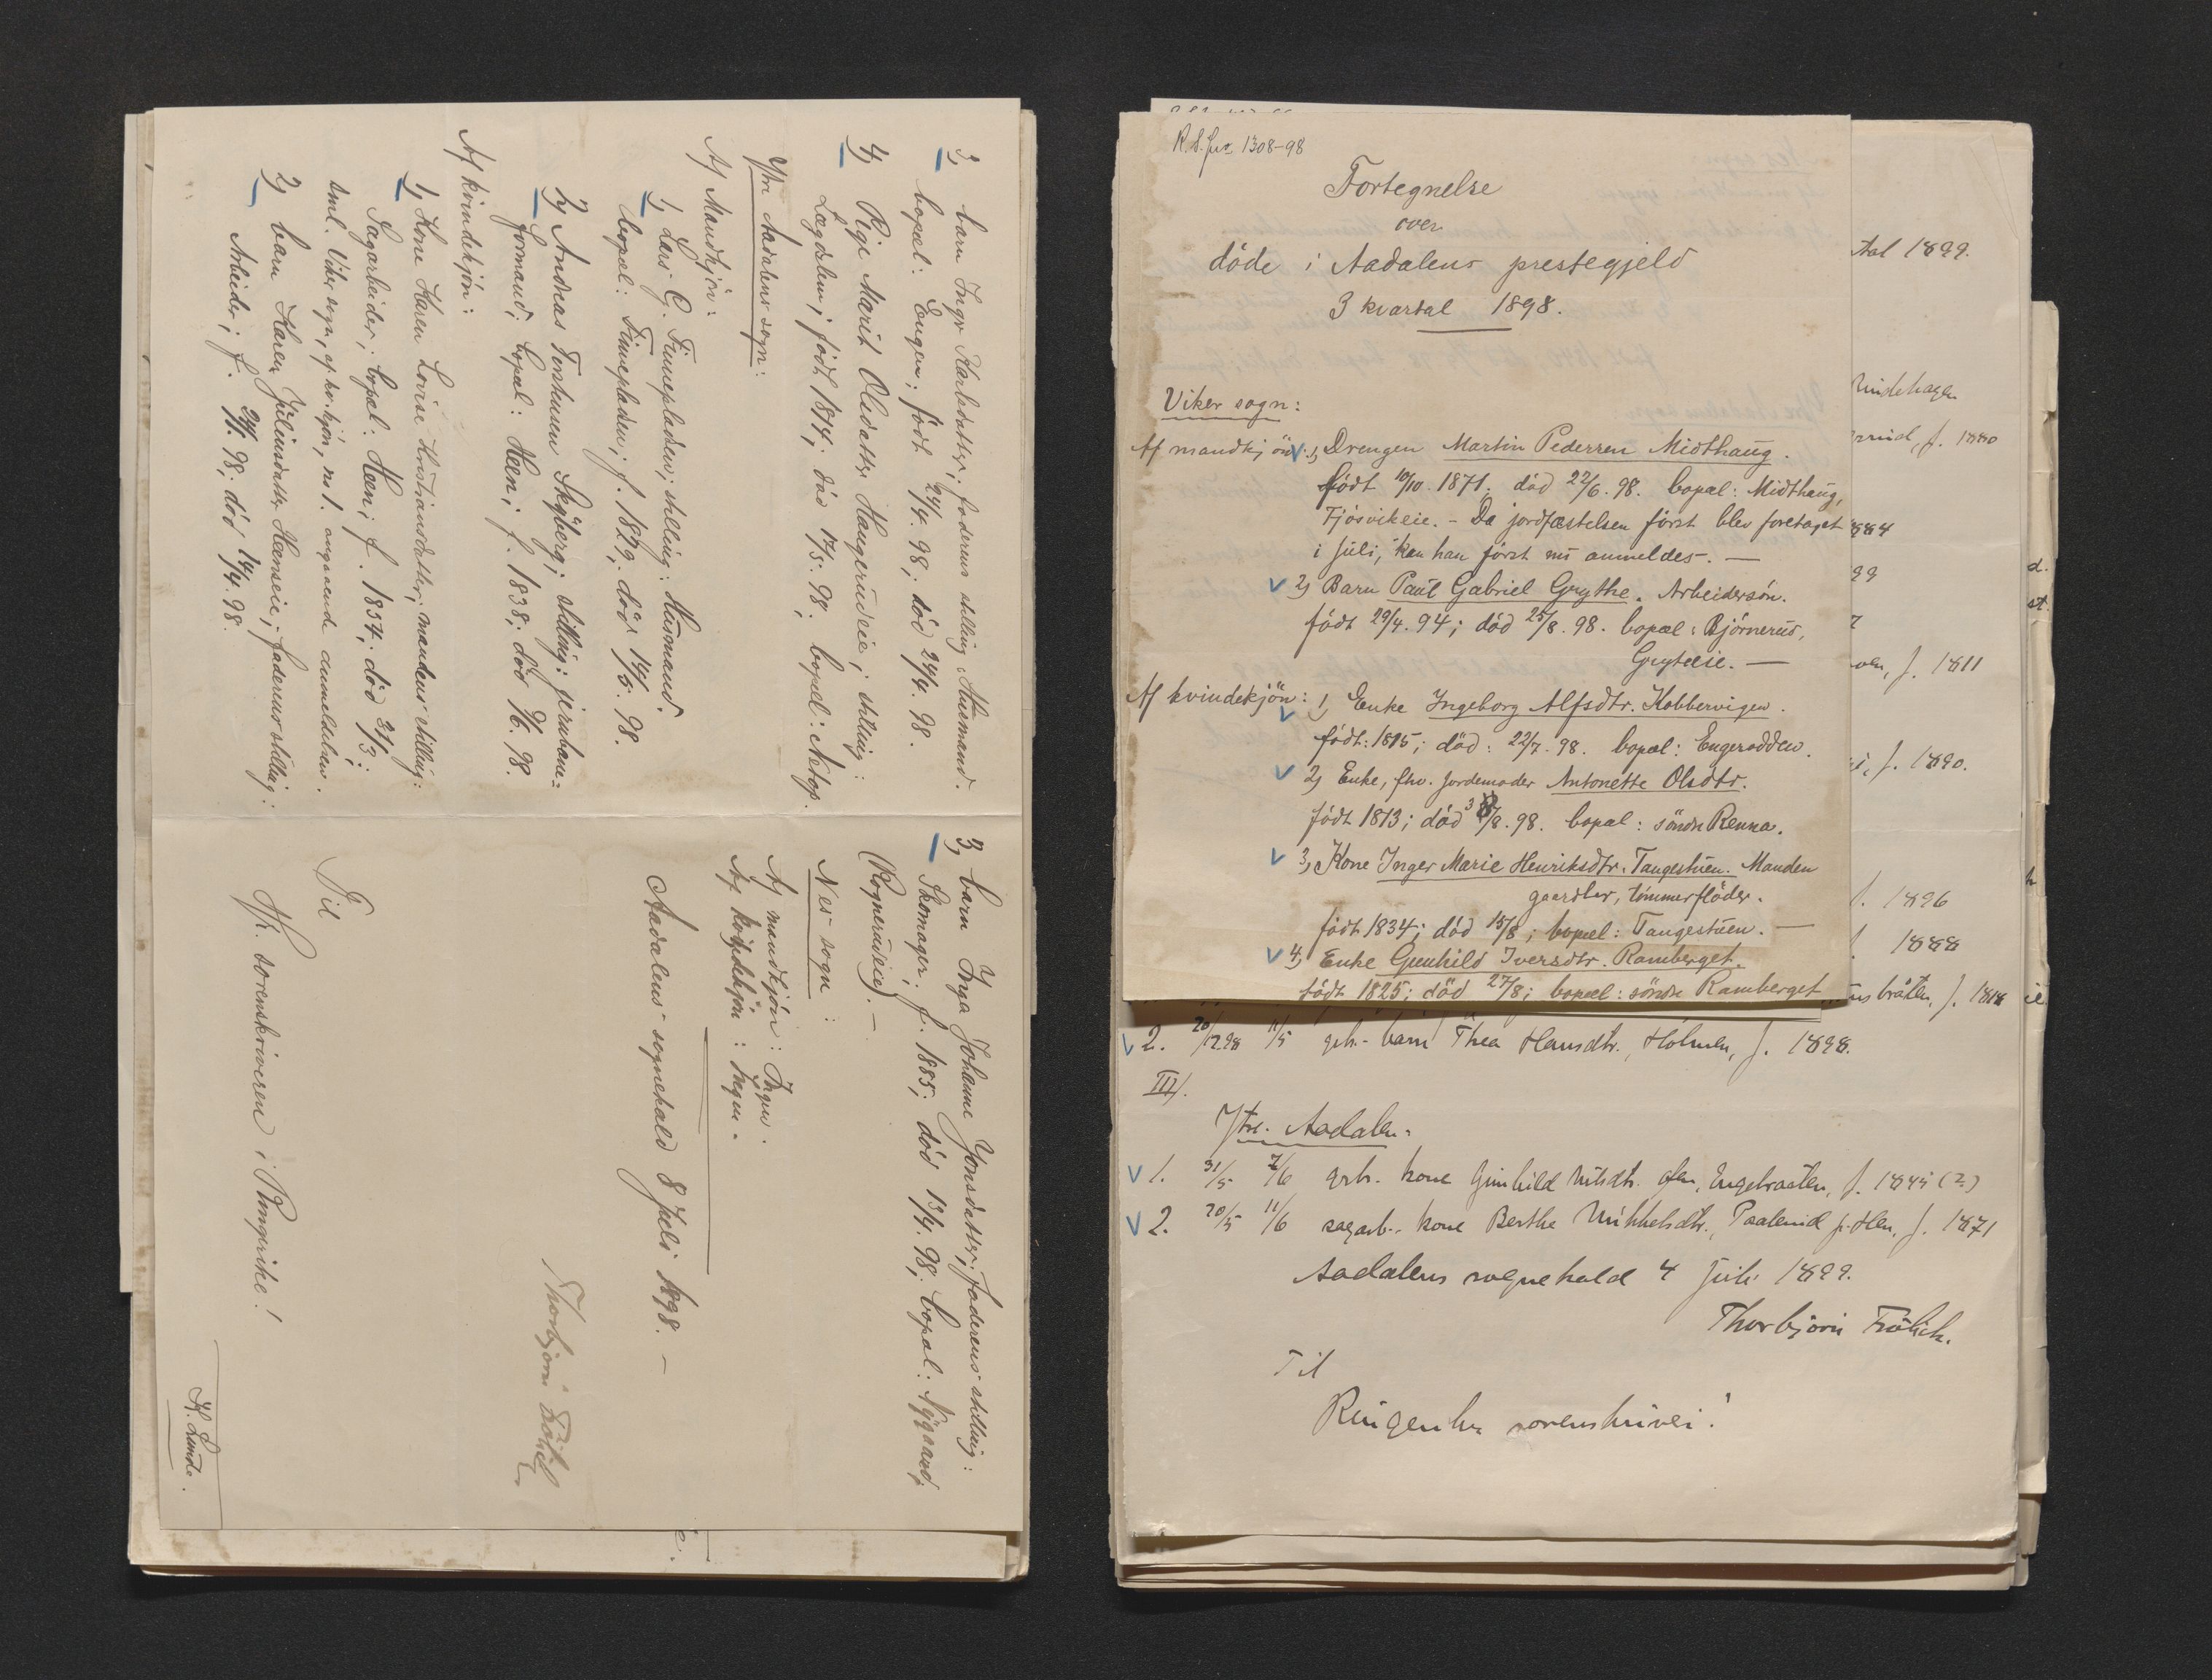 3, barn Inga Karlsdatter; faderens stilling Husmand.
bopæl: Engen; født 24/4. 98; död 24/4. 98.
4, Pige Marit Olsdatter Haugerudeie; stilling:
Lægdslem; födt 1814; död 17/5. 98; bopæl: Netop.
Ytre Aadalens sogn:
Af Mandkjön:
1, Lars G. Finnepladen; stilling: Husmand.
bopæl: Finnepladen; f. 1829; död 14/5. 98.
2, Andreas Torstensen Skyberg; stilling: jernbane=
formand; bopæl: Heen; f. 1838; död 9/6. 98.
Af kvindekjön:
1, Kone Karen Lovise Kristiansdatter; mandens stilling:
Sagarbeider; bopæl: Heen; f. 1854; död 31/3;
sml. Viker sogn, af kv.kjön, no 1. angaaende anmeldelsen.
2, barn Karen Juliusdatter Heenseie; faderens stilling:
Arbeider; f. 98; död 14/4. 98.
3, barn Inga Johanne Jonsdatter; faderens stilling:
Skomager; f. 1885; död 13/4. 98; bopæl: Nygaard;
(Rognerudeie). —
Nes sogn:
Af mandkjön: Ingen.
Af kvindekjön: Ingen.
Aadalens sognekald 8 juli 1898. —
Thorbjörn Frölich
Til
Hr. sorenskriveren i Ringerike!
K. Lunde.
R. S. Jur 1308-98
Fortegnelse
over
döde i Aadalens prestegjeld
3 kvartal 1898.
Viker sogn:
Af mandkjön: 1, Drengen Martin Pedersen Midthaug.
födt 10/10. 1871; död 22/6. 98. bopæl: Midthaug,
Fjösvikeie. - Da jordfæstelsen först blev foretaget
i juli, kan han först nu anmeldes. —
2, Barn Paul Gabriel Grythe. Arbeidersön.
födt 29/4. 94; död 25/8. 98. bopæl: Björnerud,
Gryteeie. —
Af kvindekjön: 1, Enke Ingeborg Alfsdtr. Kobbervigen.
födt: 1815; död: 22/7. 98. bopæl: Engerodden.
2, Enke, fhv. jordemoder Antonette Olsdtr.
födt 1813; död 3/8. 98. bopæl: söndre Renna.
3, Kone Inger Marie Henriksdtr. Tangestuen. Manden
gaardbr, tömmerflöder.
födt 1834; död 15/8; bopæl: Tangestuen. —
4, Enke Gunhild Iversdtr. Ramberget.
födt 1825; död 27/8; bopæl: söndre Ramberget
tal 1899.
rud, f. 1880
1884
99
7
f. 1811
f. 1890.
f. 1896
1888
bråten, f. 1818
d.
st.
2. 20/12 98 11/5 grb. - barn Thea Hansdtr., Holmen, f. 1898.
III).
Ytre Aadalen.
1. 31/5 7/6 grb. kone Gunhild Nilsdtr. Engebraaten, f. 1845 (?)
2. 20/5 11/6 sagarb. kone Berthe Mikkelsdtr., Paalerud p. Hen, f. 1871
Aadalens sognekald 4 juli 1899.
Thorbjörn Frölich.
Til
Ringerike sorenskriveri!